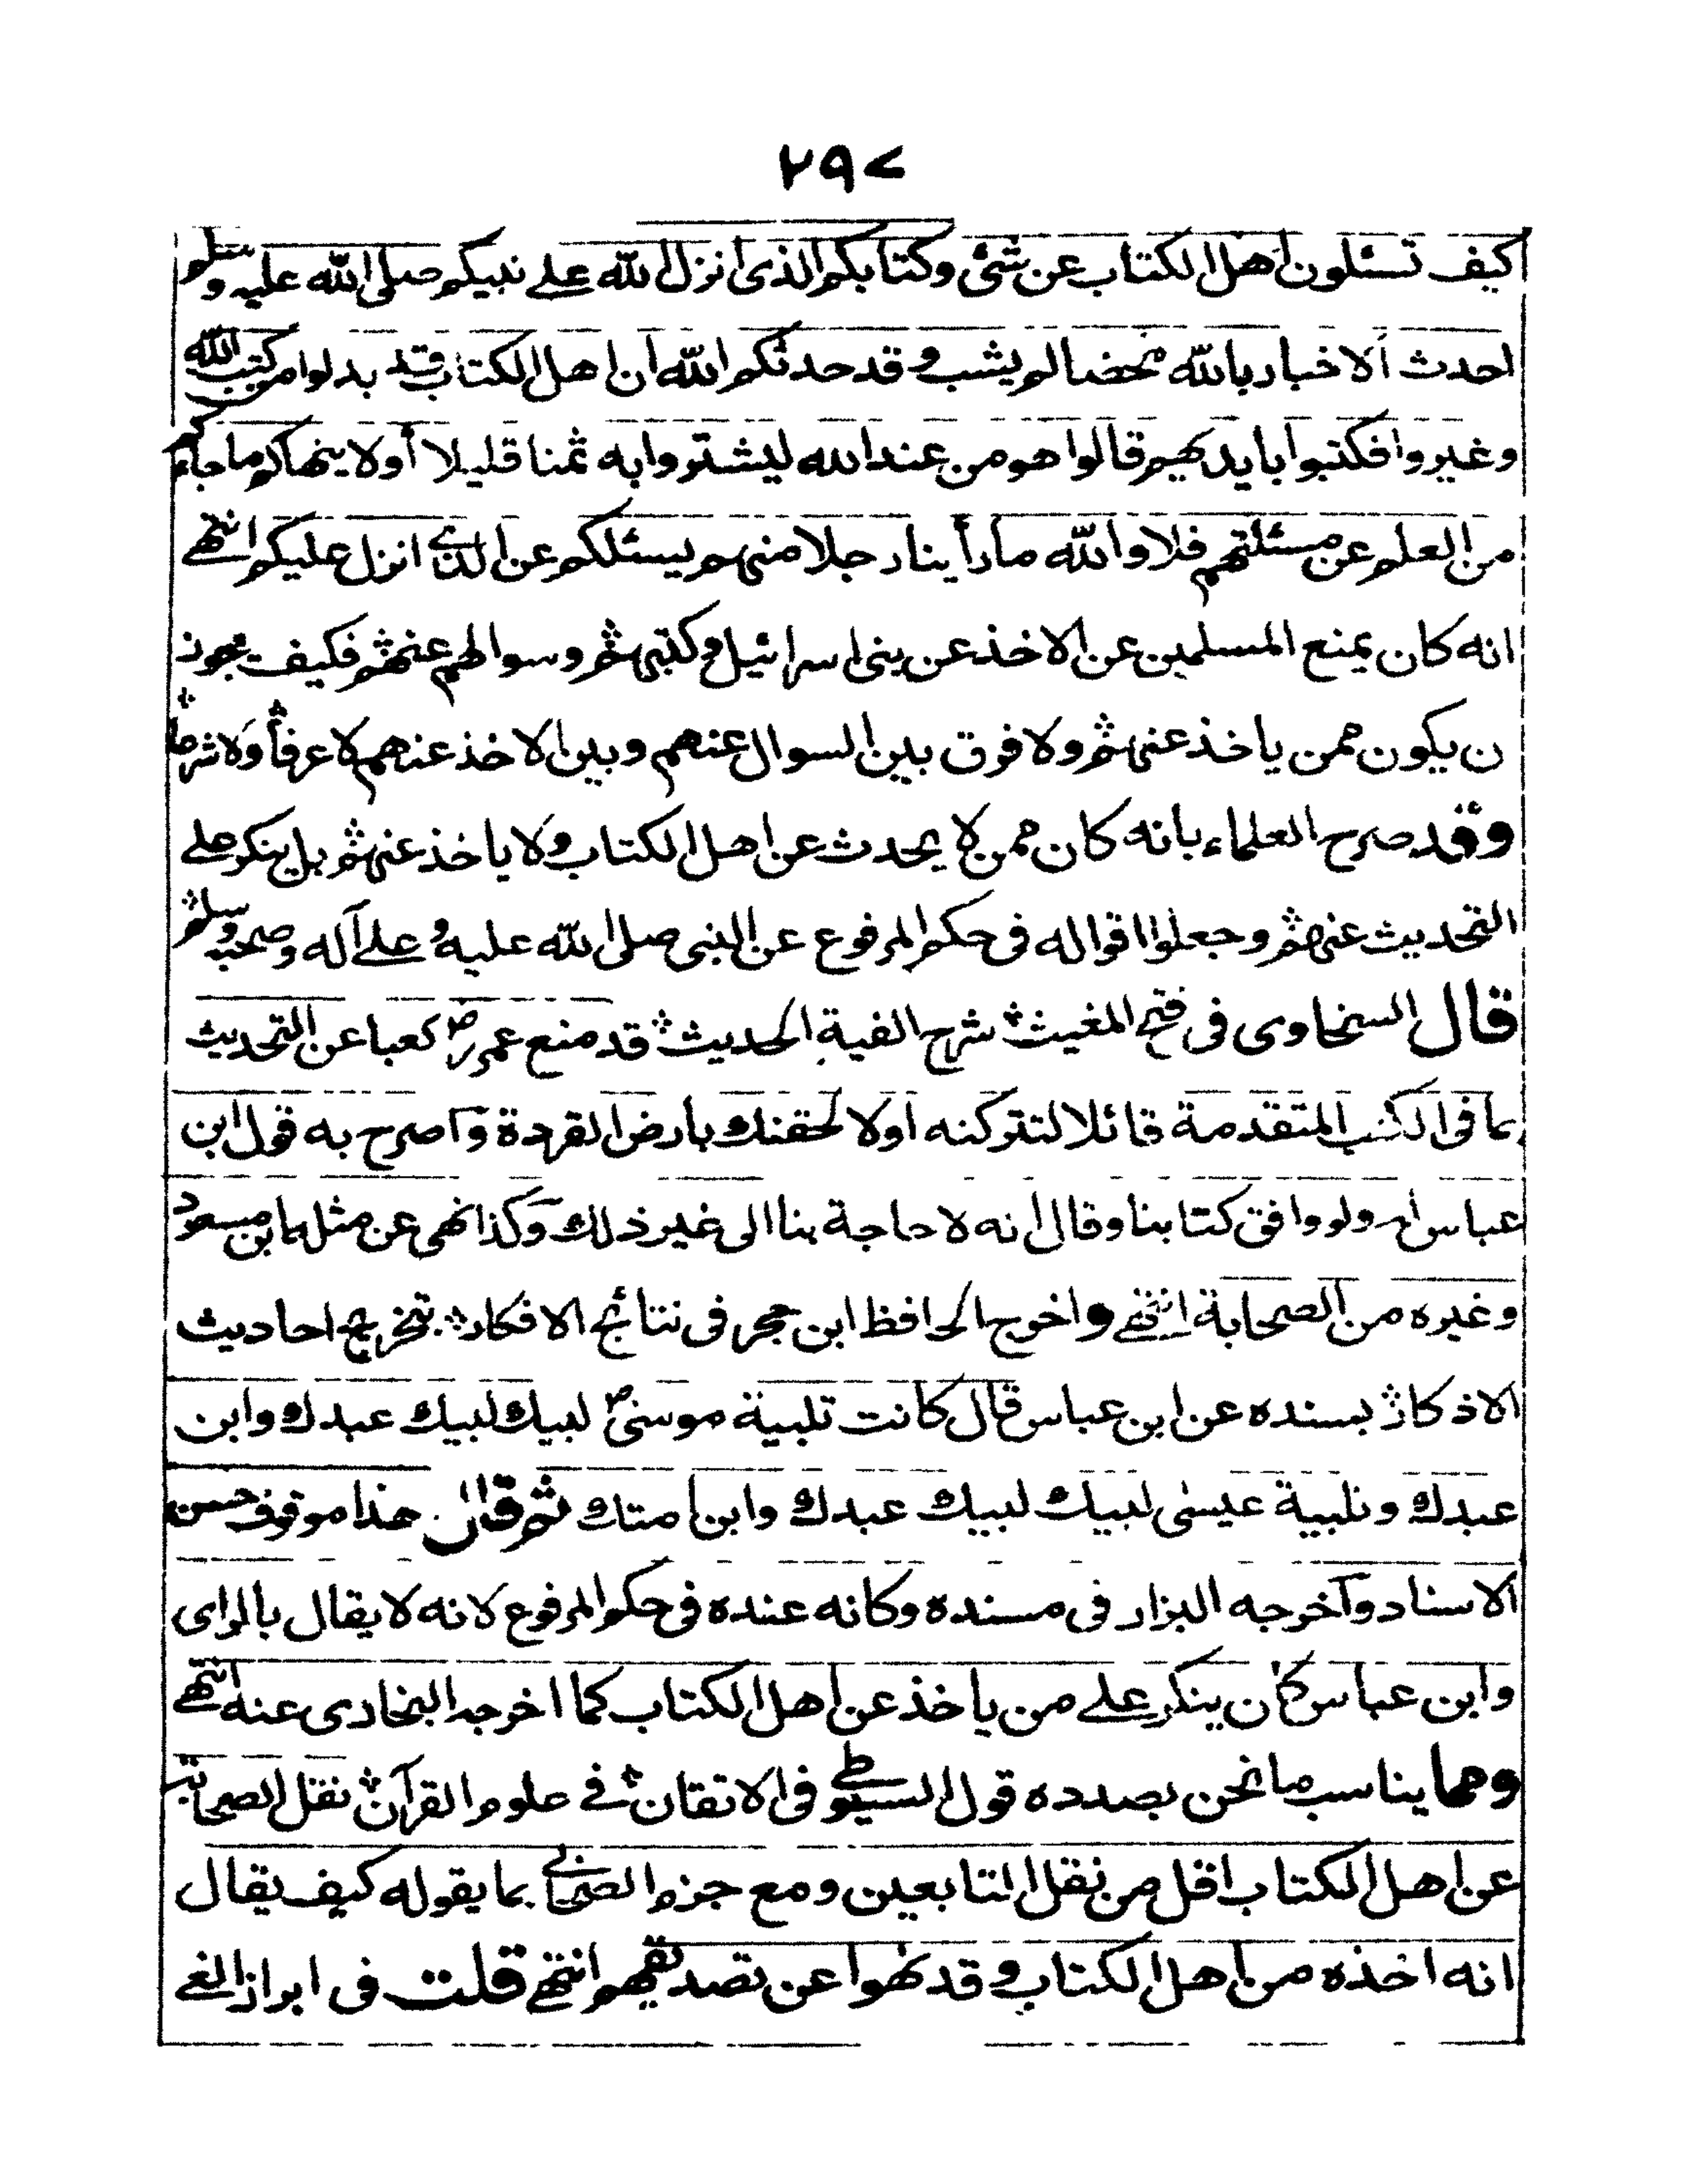 ٢٩٧
كيف تسئلون اهل الكتاب عن شئ وكتابكم الذى انزل الله على نبيكم صلى الله عليه وسلم
احدث الاخبار بالله محضا لم يشب وقد حدثكم الله ان اهل الكتاب قد بدلوا من كتب الله
وغيروا فكتبوا بايديهم قالوا هو من عند الله ليشتروا به ثمنا قليلا أولا ينهاكم ما جاءكم
من العلم عن مسئلتهم فلا والله ما رأينا رجلا منهم يسئلكم عن الذي انزل عليكم انتهى
انه كان يمنع المسلمين عن الاخذ عن بنى اسرائيل وكتبهم وسوالهم عنهم فكيف يجوز
ن يكون ممن ياخذ عنهم ولا فرق بين السوال عنهم وبين الاخذ عنهم لا عرفا ولا شرعا
وقد صرح العلماء بانه كان ممن لا يحدث عن اهل الكتاب ولا ياخذ عنهم بل ينكر على
التحديث عنهم وجعلوا اقواله فى حكم المرفوع عن النبى صلى الله عليه وعلى آله وصحبه وسلم
قال السخاوى فى فتح المغيث شرح الفية الحديث قد منع عمر رض كعبا عن التحديث
بما فى الكتب المتقدمة قائلا لتتركنه اولا لحقنك بارض القردة واصرح به قول ابن
عباس له ولو وافق كتابنا وقال انه لا حاجة بنا الى غير ذلك وكذا نهى عن مثل ابن مسعود
وغيره من الصحابة انتهى واخرج الحافظ ابن حجر فى نتائج الافكار بتخريج احاديث
الاذكار بسنده عن ابن عباس قال كانت تلبية موسى لبيك لبيك عبدك وابن
عبدك وتلبية عيسى لبيك لبيك عبدك وابن امتك ثم قال هذا موقوف حسن
الاسناد وآخرجه البزار فى مسنده وكانه عنده فى حكم المرفوع لانه لا يقال بالراى
وابن عباس كان ينكر على من ياخذ عن اهل الكتاب كما اخرجه البخارى عنه انتهى
ومما يناسب ما نحن بصدده قول السيوطى فى الاتقان في علوم القرآن نقل الصحابة
عن اهل الكتاب اقل من نقل التابعين ومع جزم الصحابي بما يقوله كيف يقال
انه اخذه من اهل الكتاب وقد نهوا عن تصديقهم انتهى قلت فى ابراز الغى